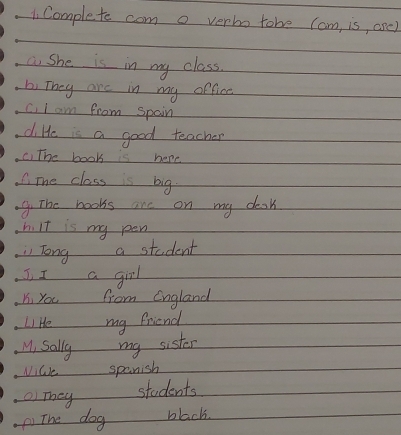 1. Complete com o verbo tobe (am, is, are)
a) She is in my class.
b) They are in my office
c) I am from Spain
d) He is a good teacher
e) The book is here
f) The class is big.
g) The books are on my desk
h) IT is my pen
i) Tony a student
J) I a girl
K) You from England
L) He my friend
M) Sally my sister
N) We spanish
O) They students
p) The dog black.